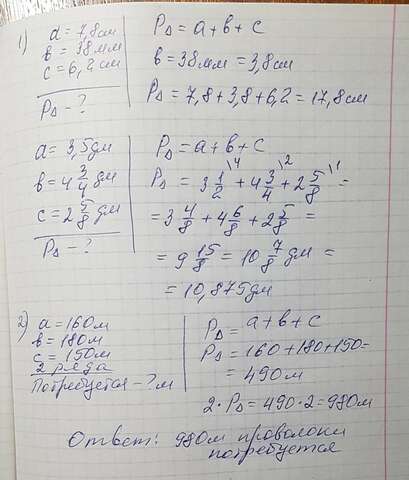 1) a = 7,8 см
в = 38 мм
с = 6,2 см
P△ - ?
P△ = a + в + c
в = 38 мм = 3,8 см
P△ = 7,8 + 3,8 + 6,2 = 17,8 см
a = 3,5 дм
в = 4 3/4 дм
с = 2 5/8 дм
P△ - ?
P△ = a + в + c
P△ = 3 1/2 \4 + 4 3/4 \2 + 2 5/8 \1 =
= 3 4/8 + 4 6/8 + 2 5/8 =
= 9 15/8 = 10 7/8 дм =
= 10,875 дм
2) a = 160 м
в = 180 м
с = 150 м
2 ряда
Потребуется - ? м
P△ = a + в + c
P△ = 160 + 180 + 150 =
= 490 м
2 · P△ = 490 · 2 = 980 м
Ответ: 980 м проволоки
потребуется